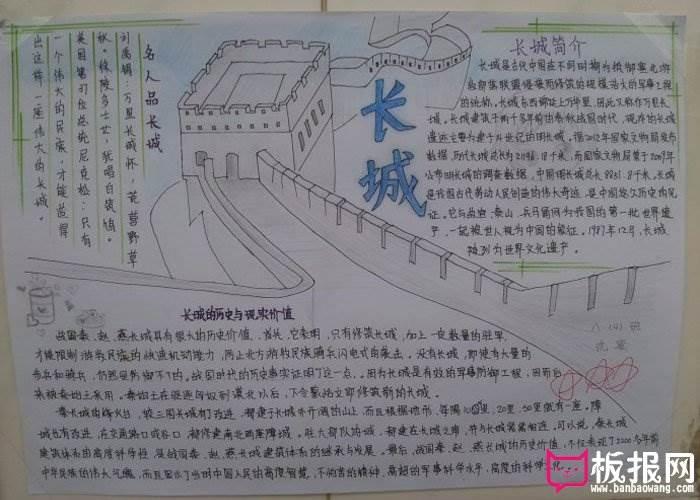 长城
名人品长城
刘禹锡:万里长城怀。荒芜野草
秋。秣陵多士女,犹唱白符鸠。
美国第37位总统尼克松:只有
一个伟大的民族,才能造得
出这样一座伟大的长城。
长城简介
长城是古代中国在不同时期为抵御塞北游
牧部落联盟侵袭而修筑的规模浩大的军事工程
的统称。长城东西绵延上万华里,因此又称作万里长
城。长城建筑于两千多年前的春秋战国时代,现存的长城
遗迹主要为建于14世纪的明长城。据2012年国家文物局发布
数据,历代长城总长为21196.18千米,而国家文物局曾于2009年
公布明长城的调查数据,中国明长城总长8851.8千米。长城
是我国古代劳动人民创造的伟大奇迹,是中国悠久历史的见
证。它与故宫、泰山、兵马俑同为我国的第一批世界遗
产,一起被世人视为中国的象征。1987年12月,长城
被列为世界文化遗产。
长城的历史与现实价值
战国秦、赵、燕长城具有很大的历史价值。首先,它表明,只有修筑长城,加上一定数量的驻军,
才能限制游牧民族的快速机动能力,阻止北方游牧民族骑兵闪电式的袭击。没有长城,即使有大量的
步兵和骑兵,仍然是防御不了的。战国时代的历史事实证明了这一点。因为长城是有效的军事防御工程,因而后
来被秦始皇采用。秦始皇在驱逐匈奴到漠北以后,下令蒙恬立即修筑新的长城。
秦长城的烽火台,较三国长城有了改进,都建于长城外开阔的山上,而且根据地形,每隔10里、20里、50里就有一座。障
城也有改进,在交通路口或谷口,都修建南北两座障城。驻大部队的城,都建在长城之南,并与长城紧紧相连。可以说,秦长城
建筑体系的高度科学性,是战国秦、赵、燕长城建筑体系的继承与发展。最后,战国秦、赵、燕长城的历史价值,不仅表现了2000多年前
中华民族的伟大气魄,而且显示了当时中国人民的高度智慧、不倒苦的精神、高超的军事科学水平、高度的科学文化...
八·(4)班
板报网
www.banbaowang.com